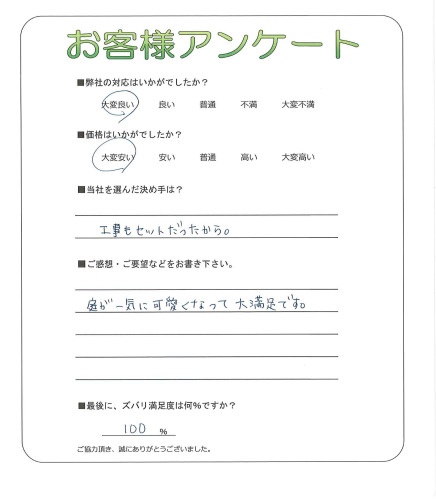 お客様アンケート
■弊社の対応はいかがでしたか？
大変良い 良い 普通 不満 大変不満
■価格はいかがでしたか？
大変安い 安い 普通 高い 大変高い
■当社を選んだ決め手は？
工事もセットだったから。
■ご感想・ご要望などをお書き下さい。
庭が一気に可愛くなって大満足です。
■最後に、ズバリ満足度は何％ですか？
100 ％
ご協力頂き、誠にありがとうございました。